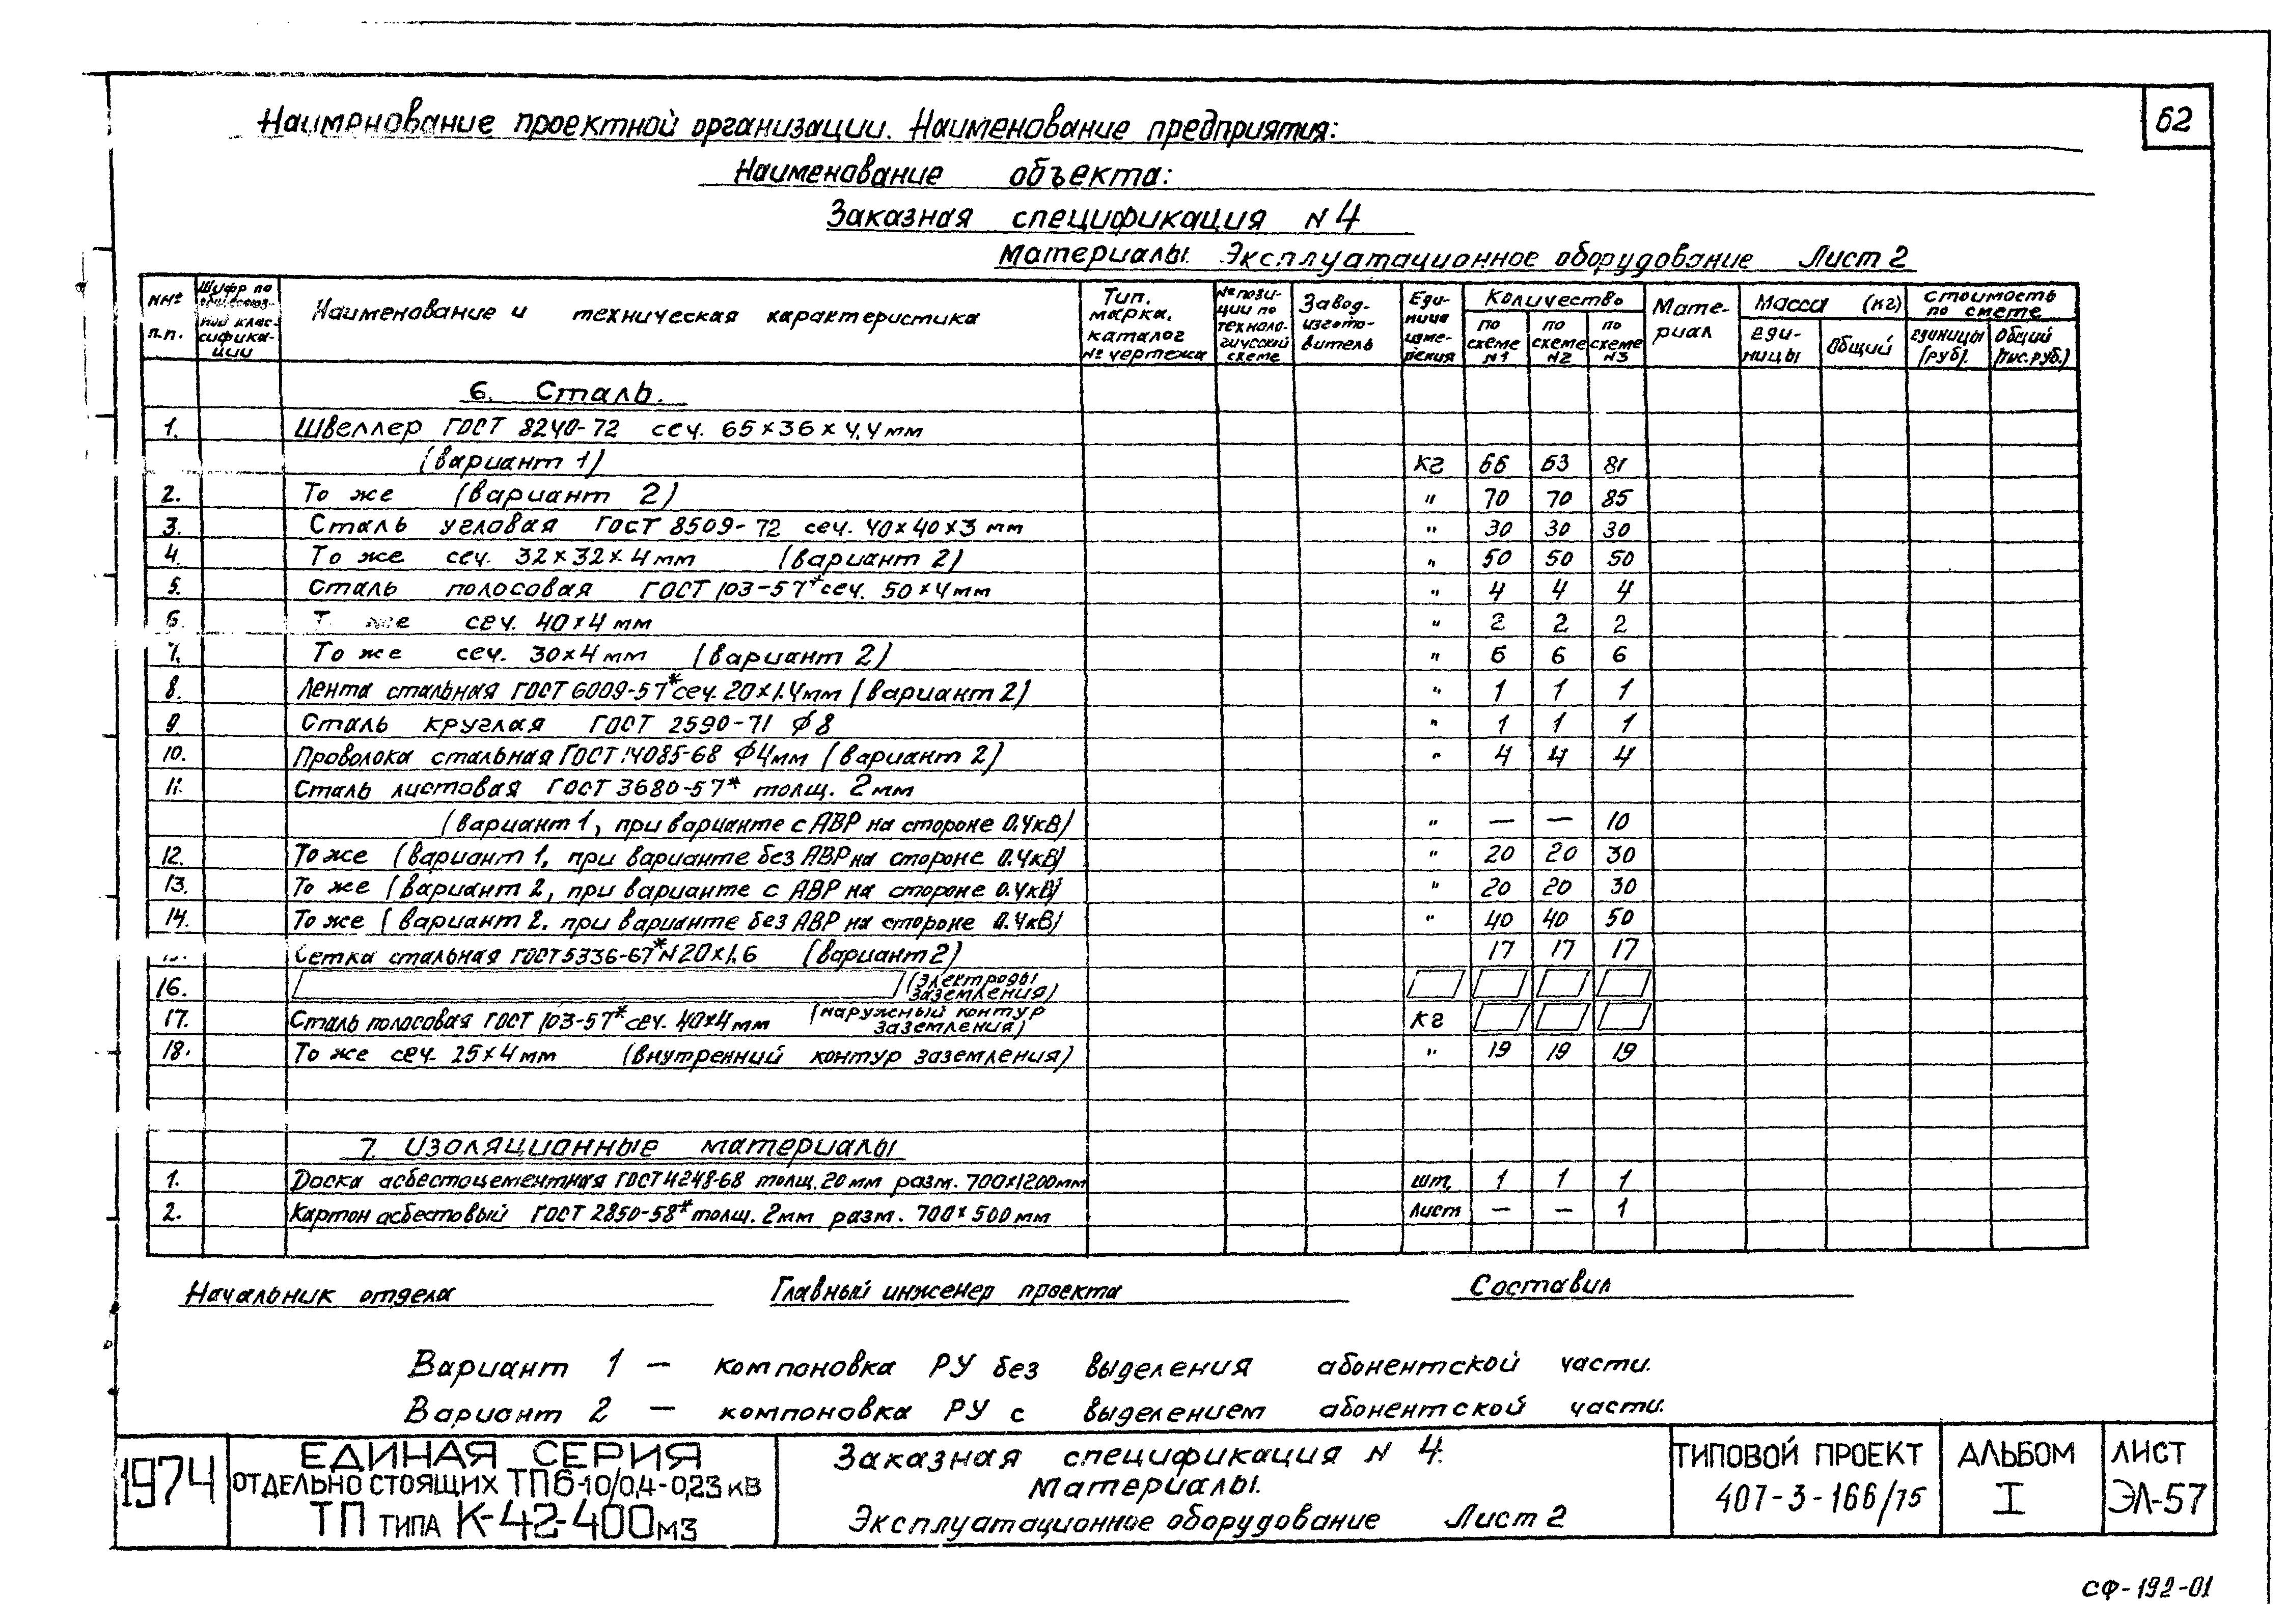 62
Наименование проектной организации. Наименование предприятия:
Наименование объекта:
Заказная спецификация N 4
Материалы. Эксплуатационное оборудование Лист 2
NNº п.п. | Шифр по общесоюзной классификации | Наименование и техническая характеристика | Тип, марка, каталог № чертежа | № позиции по технологической схеме | Завод-изготовитель | Единица измерения | Количество | Материал | Масса (кг) | Стоимость по смете
по схеме N1 | по схеме N2 | по схеме N3 | единицы | общий | единицы (руб). | общий (тыс.руб.)
6. Сталь.
1. Швеллер ГОСТ 8240-72 сеч. 65×36×4,4мм
(вариант 1) кг 66 63 81
2. То же (вариант 2) " 70 70 85
3. Сталь угловая ГОСТ 8509-72 сеч. 40×40×3 мм " 30 30 30
4. То же сеч. 32×32×4мм (вариант 2) " 50 50 50
5. Сталь полосовая ГОСТ 103-57* сеч. 50×4мм " 4 4 4
6. То же сеч. 40×4мм " 2 2 2
7. То же сеч. 30×4мм (вариант 2) " 6 6 6
8. Лента стальная ГОСТ 6009-57* сеч. 20×1.4мм (вариант 2) " 1 1 1
9 Сталь круглая ГОСТ 2590-71 ф8 " 1 1 1
10. Проволока стальная ГОСТ 14085-68 ф4мм (вариант 2) " 4 4 4
11. Сталь листовая ГОСТ 3680-57* толщ. 2мм
(вариант 1, при варианте с АВР на стороне 0.4кВ) " — — 10
12. То же (вариант 1, при варианте без АВР на стороне 0.4кВ) " 20 20 30
13. То же (вариант 2, при варианте с АВР на стороне 0.4кВ) " 20 20 30
14. То же (вариант 2. при варианте без АВР на стороне 0.4кВ) " 40 40 50
Сетка стальная ГОСТ 5336-67* N20×1,6 (вариант 2) 17 17 17
16. (электроды заземления)
17. Сталь полосовая ГОСТ 103-57* сеч. 40×4мм (наружный контур заземления) кг
18. То же сеч. 25×4мм (внутренний контур заземления) " 19 19 19
7. Изоляционные материалы
1. Доска асбестоцементная ГОСТ 4248-68 толщ. 20мм разм. 700×1200мм шт. 1 1 1
2. Картон асбестовый ГОСТ 2850-58* толщ. 2мм разм. 700×500мм лист — — 1
Начальник отдела Главный инженер проекта Составил
Вариант 1 — компоновка РУ без выделения абонентской части.
Вариант 2 — компоновка РУ с выделением абонентской части.
1974
ЕДИНАЯ СЕРИЯ
ОТДЕЛЬНО СТОЯЩИХ ТП 6-10/0,4-0,23 кВ
ТП ТИПА К-42-400 м3
Заказная спецификация N 4.
Материалы.
Эксплуатационное оборудование Лист 2
ТИПОВОЙ ПРОЕКТ
407-3-166/75
АЛЬБОМ
I
ЛИСТ
ЭЛ-57
СФ-192-01